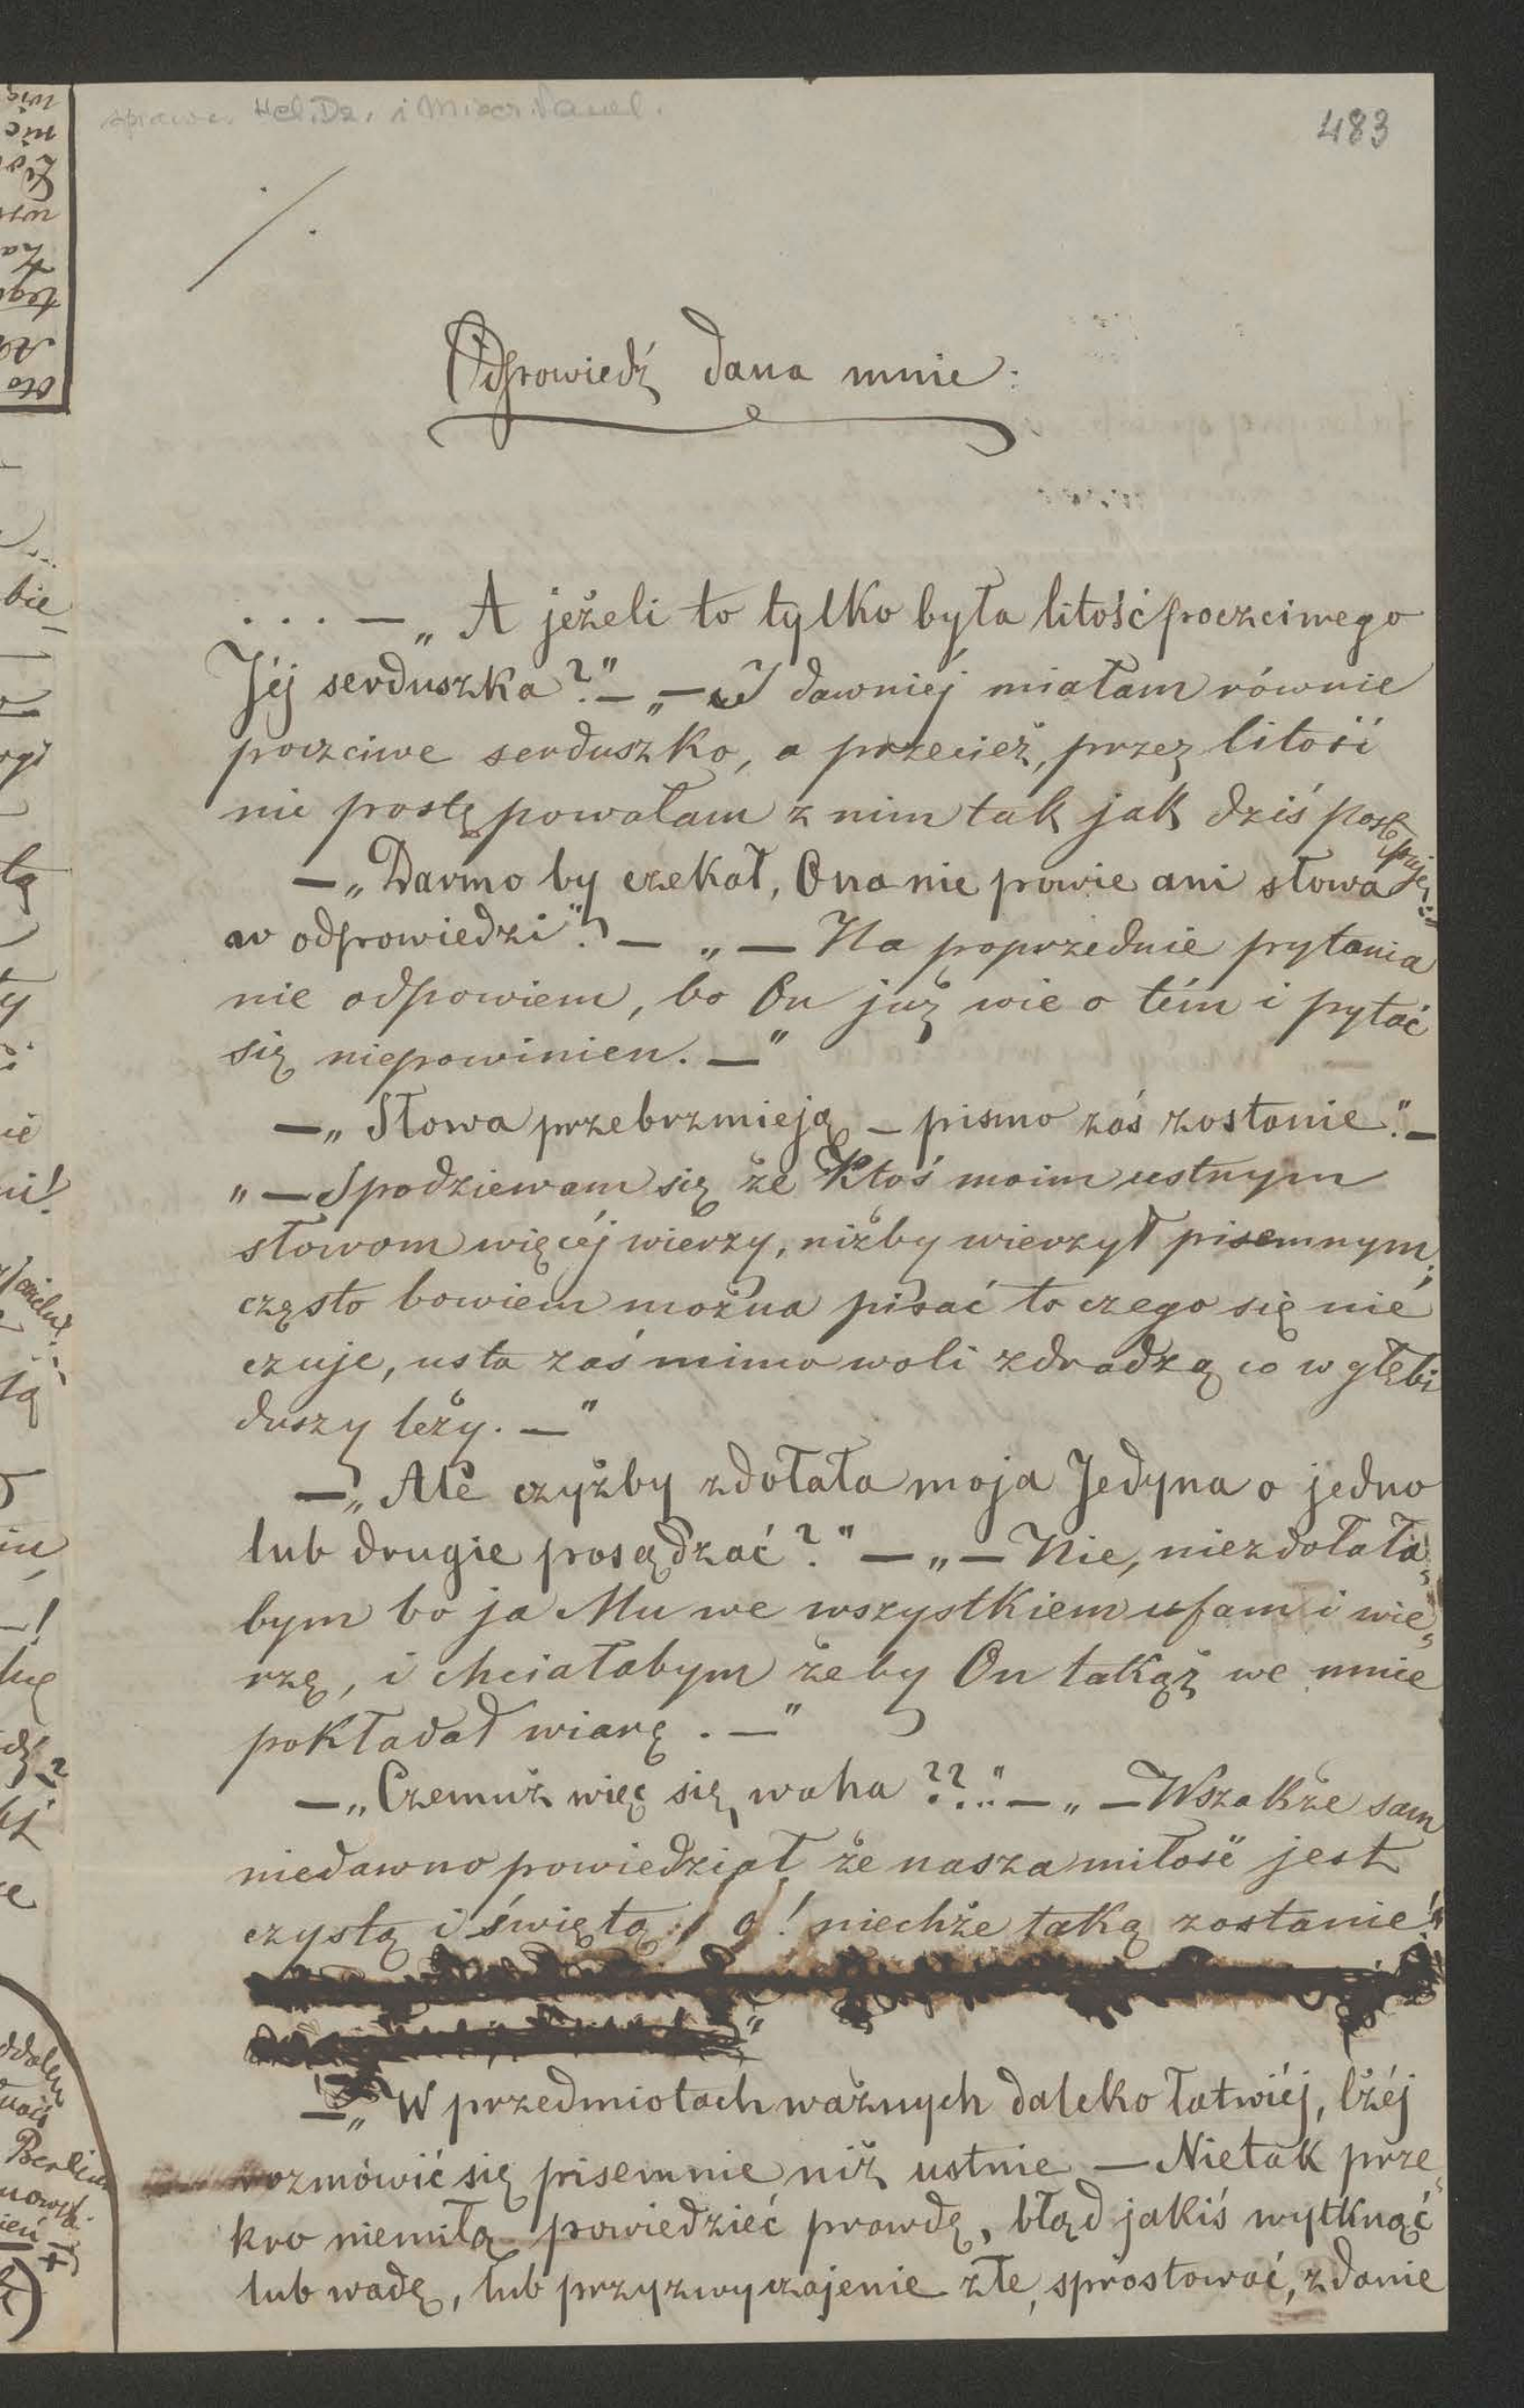 483
Odpowiedź dana mnie:
. . . — „A jeżeli to tylko była litość poczciwego
Jéj serduszka?" — „— I dawniéj miałam równie
poczciwe serduszko, a przecież, przez litość
nie postępowałam z nim tak jak dziś postępuję."
— „Darmo by czekał, Ona nie powie ani słowa
w odpowiedzi". — „— Na poprzednie pytania
nie odpowiem, bo On już wie o tém i pytać
się niepowinien. —"
— „Słowa przebrzmieją — pismo zaś zostanie." —
„— Spodziewam się że Ktoś moim ustnym
słowom więcéj wierzy, niżby wierzył pisemnym;
często bowiem można pisać to czego się nie
czuje, usta zaś mimo woli zdradzą co w głębi
duszy leży. —"
— „Ale czyżby zdołała moja Jedyna o jedno
lub drugie posądzać?" — „— Nie, niezdołała„
bym bo ja Mu we wszystkiem ufam i wie„
rzę, i chciałabym żeby On takąż we mnie
pokładał wiarę. —"
— „Czemuż więc się waha??." — „— Wszakże sam
niedawno powiedział że nasza miłość jest
czystą i świętą; o! niechże taką zostanie!"
— „W przedmiotach ważnych daleko łatwiéj, lżéj
rozmówić się pisemnie niż ustnie — Nietak prze„
kro niemiłą powiedzieć prawdę, błąd jakiś wytknąć
lub wadę, lub przyzwyczajenie złe, sprostować, zdanie